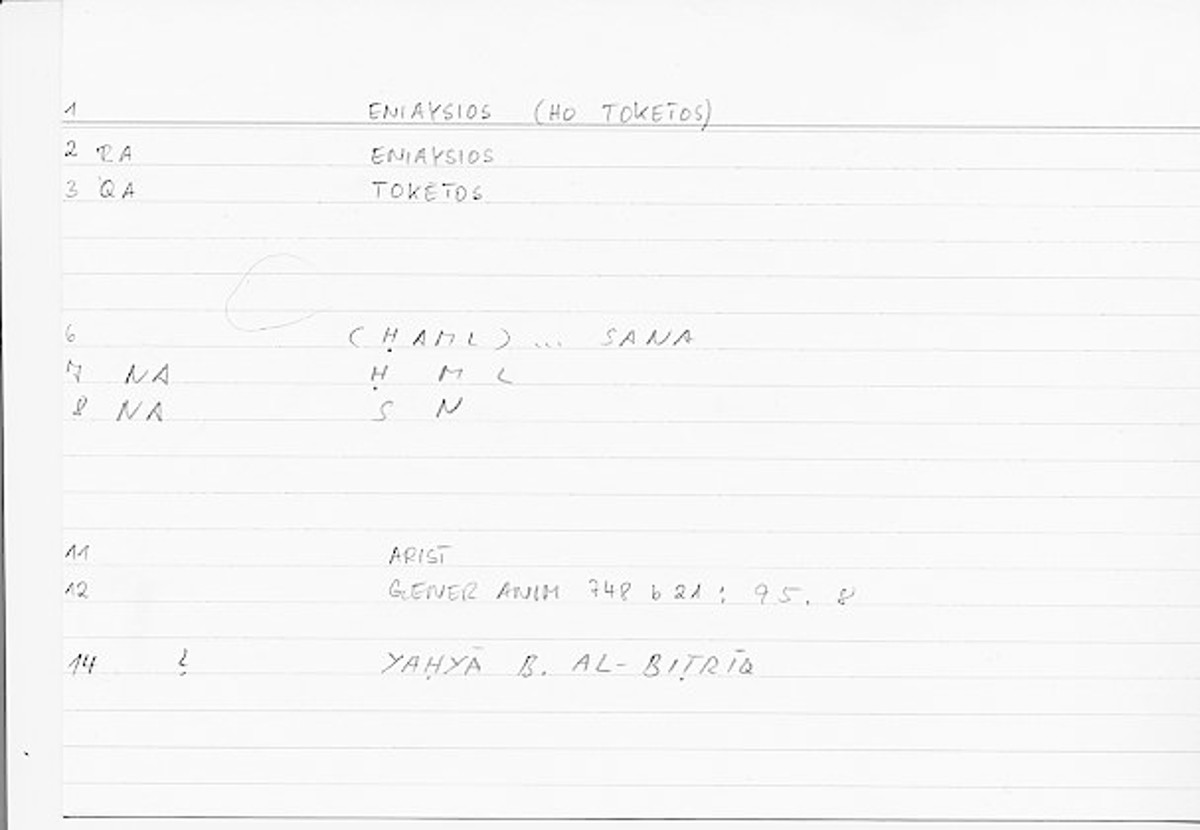 1 ENIAYSIOS (HO TOKETOS)
2 RA ENIAYSIOS
3 QA TOKETOS
6 (ḤAML) ... SANA
7 NA Ḥ M L
8 NA S N
11 ARIST
12 GENER ANIM 748 b 21 : 95. 8
14 ? YAḤYĀ B. AL-BIṬRĪQ